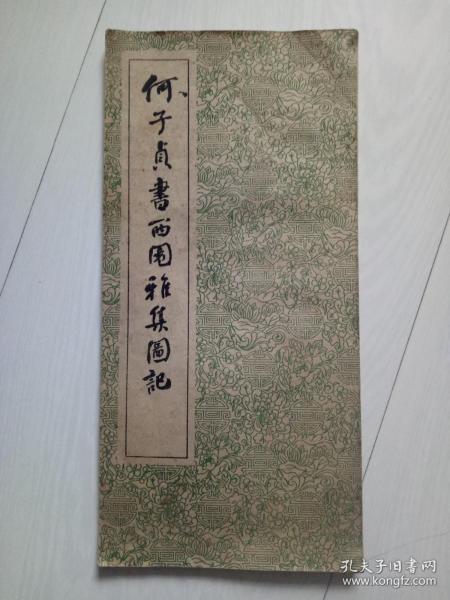 何子貞書西园雅集圖記
孔夫子旧书网
www.kongfz.com